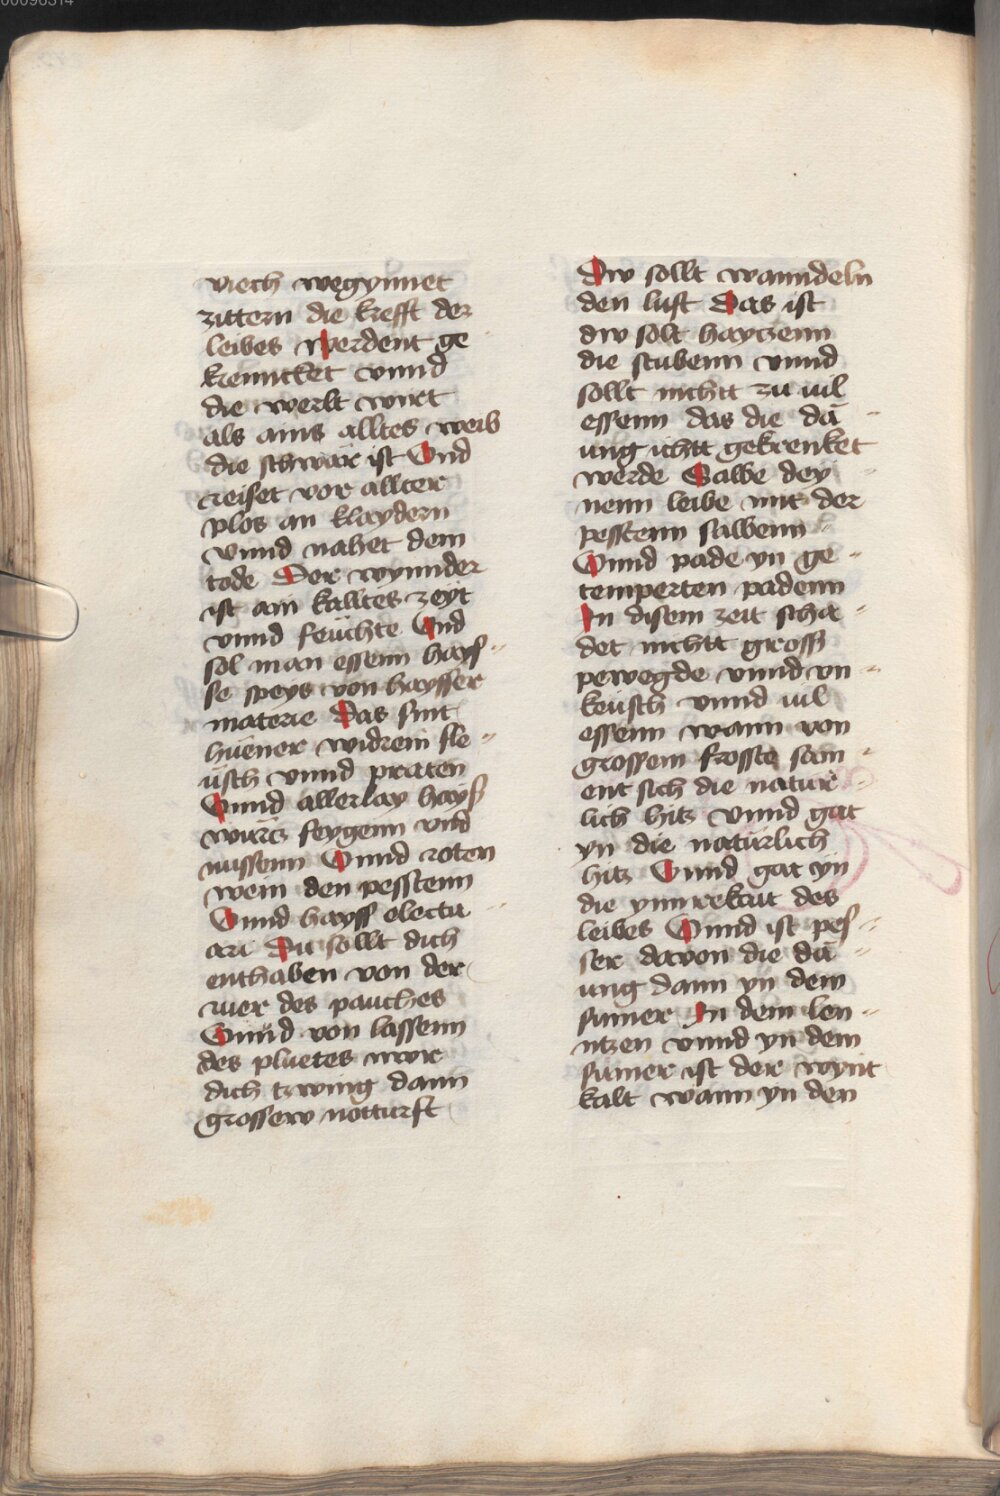 00096314
viech wegynnet
zittern die krefft der
leibes werdent ge
krenncket vnnd
die werlt wirt
als ains alltes weib
die schwär ist Vnd
reiset vor allter
plos an klaydern
vnnd nahet dem
tode Der wynnder
ist ain kalltes zeyt
vnnd feüchte Vnd
sol man essenn hays=
se speys von haysser
materie Das sint
hüener widrein fle=
isch vnnd praten
Vnnd allerlay hays
würtz feygenn vnd
nussenn Vnnd roten
wein den pesstenn
Vnnd hayss electu=
ari Du sollt dich
enthaben von der
ruer des pauches
Vnnd von lassenn
des pluetes nwr
dich tzwing dann
grossew notturft
Dw sollt wanndeln
den lust Das ist
dw solt haytzenn
die stubenn vnnd
sollt nichtt zu uil
essenn das die dä=
ung ichtt gekrenket
werde Salbe dey=
nenn leibe mit der
pesstenn salbenn
Vnnd pade yn ge=
temperten padenn
In disem zeit scha=
det nichtt gross
pewegde vnnd vn=
keüsch vnnd uil
essenn wann von
grossem frosste sam=
ent sich die natür=
lich hitz vnnd gat
yn die natürlich
hitz Vnnd gat yn
die ynnrekait des
leibes Vnnd ist pes=
ser dovon die dä=
ung dann yn dem
sumer In dem len=
ntzen vnnd yn dem
sumer ist der wynt
kalt wann yn den